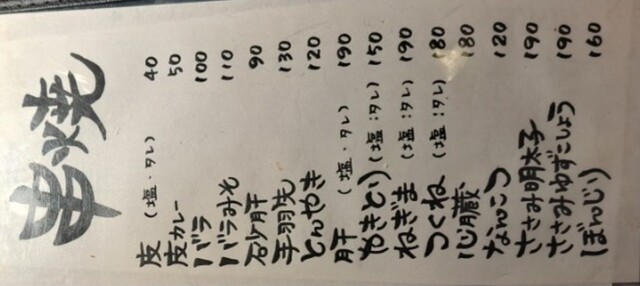 串焼
皮(塩・タレ) 40
皮カレー 50
バラ 100
バラみそ 110
砂肝 90
手羽先 130
とんやき 120
肝(塩・タレ) 190
やきとり(塩:タレ) 150
ねぎま(塩:タレ) 190
つくね(塩:タレ) 180
心臓 180
なんこつ 120
ささみ明太子 190
ささみゆずこしょう 190
ぼんじり 160